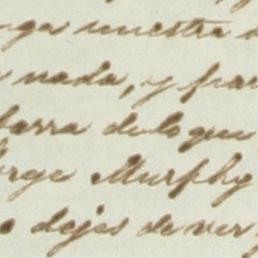 nga nuestra
nada, y par
farra de lo que
orge Murphy
dejes de ver